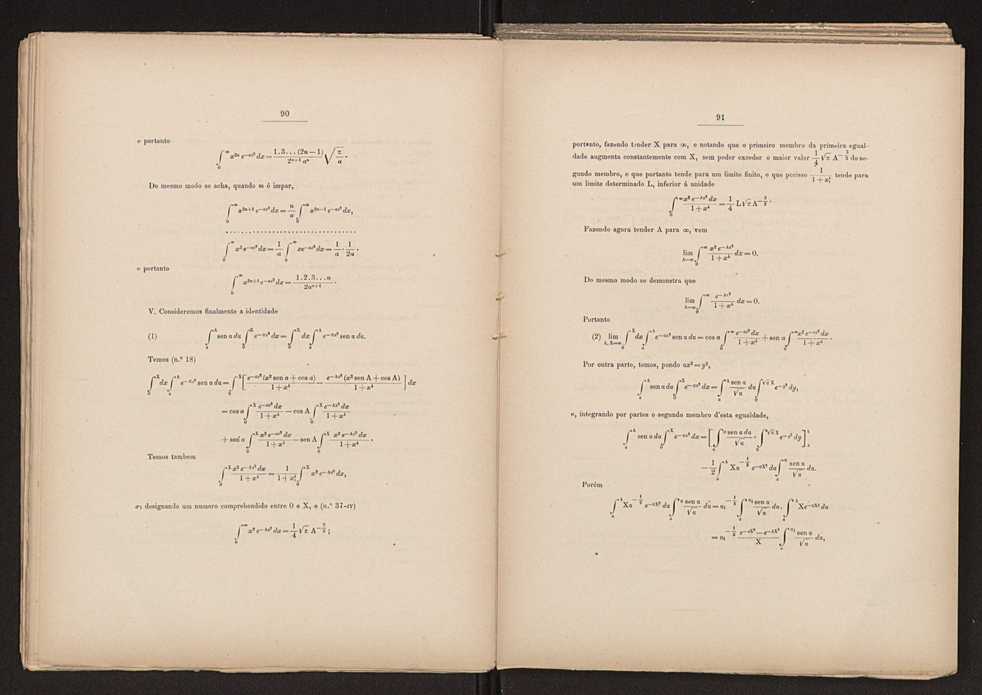 90
e portanto
∫₀^∞ x²ⁿ e^{−ax²} dx = \frac{1.3...(2n−1)}{2^{n+1} aⁿ} √(π/a).
Do mesmo modo se acha, quando m é impar,
∫₀^∞ x^{2n+1} e^{−ax²} dx = \frac{n}{a} ∫₀^∞ x^{2n−1} e^{−ax²} dx,
. . . . . . . . . . . . . . . . . . . . . . . . . . . . .
∫₀^∞ x³ e^{−ax²} dx = \frac{1}{a} ∫₀^∞ xe^{−ax²} dx = \frac{1}{a} · \frac{1}{2a}.
e portanto
∫₀^∞ x^{2n+1} e^{−ax²} dx = \frac{1.2.3...n}{2a^{n+1}}.
V. Consideremos finalmente a identidade
(1) ∫ₐ^A sen a da ∫₀^X e^{−ax²} dx = ∫₀^X dx ∫ₐ^A e^{−ax²} sen a da.
Temos (n.º 18)
∫₀^X dx ∫ₐ^A e^{−ax²} sen a da = ∫₀^X [ \frac{e^{−ax²}(x² sen a + cos a)}{1+x⁴} − \frac{e^{−Ax²}(x² sen A + cos A)}{1+x⁴} ] dx
= cos a ∫₀^X \frac{e^{−ax²} dx}{1+x⁴} − cos A ∫₀^X \frac{e^{−Ax²} dx}{1+x⁴}
+ sen a ∫₀^X \frac{x² e^{−ax²} dx}{1+x⁴} − sen A ∫₀^X \frac{x² e^{−Ax²} dx}{1+x⁴}.
Temos tambem
∫₀^X \frac{x² e^{−Ax²} dx}{1+x⁴} = \frac{1}{1+x₁⁴} ∫₀^X x² e^{−Ax²} dx,
x₁ designando um numero comprehendido entre 0 e X, e (n.º 37-IV)
∫₀^∞ x² e^{−Ax²} dx = \frac{1}{4} √π A^{−3/2};
91
portanto, fazendo tender X para ∞, e notando que o primeiro membro da primeira egual-
dade augmenta constantemente com X, sem poder exceder o maior valor \frac{1}{4} √π A^{−3/2} do se-
gundo membro, e que portanto tende para um limite finito, e que por isso \frac{1}{1+x₁⁴} tende para
um limite determinado L, inferior á unidade
∫₀^∞ \frac{x² e^{−Ax²} dx}{1+x⁴} = \frac{1}{4} L√π A^{−3/2}.
Fazendo agora tender A para ∞, vem
lim_{A=∞} ∫₀^∞ \frac{x² e^{−Ax²}}{1+x⁴} dx = 0.
Do mesmo modo se demonstra que
lim_{A=∞} ∫₀^∞ \frac{e^{−Ax²}}{1+x⁴} dx = 0.
Portanto
(2) lim_{A, X=∞} ∫₀^X dx ∫ₐ^A e^{−ax²} sen a da = cos a ∫₀^∞ \frac{e^{−ax²} dx}{1+x⁴} + sen a ∫₀^∞ \frac{x² e^{−ax²} dx}{1+x⁴}.
Por outra parte, temos, pondo ax² = y²,
∫ₐ^A sen a da ∫₀^X e^{−ax²} dx = ∫ₐ^A \frac{sen a}{√a} da ∫₀^{√a X} e^{−y²} dy,
e, integrando por partes o segundo membro d'esta egualdade,
∫ₐ^A sen a da ∫₀^X e^{−ax²} dx = [ ∫ₐ^a \frac{sen a da}{√a} · ∫₀^{√a X} e^{−y²} dy ]ₐ^A
− \frac{1}{2} ∫ₐ^A Xa^{−1/2} e^{−aX²} da ∫ₐ^a \frac{sen a}{√a} da.
Porém
∫ₐ^A Xa^{−1/2} e^{−aX²} da ∫ₐ^a \frac{sen a}{√a} da = a₁^{−1/2} ∫ₐ^{a₁} \frac{sen a}{√a} da. ∫ₐ^A Xe^{−aX²} da
= a₁^{−1/2} \frac{e^{−aX²} − e^{−AX²}}{X} ∫ₐ^{a₁} \frac{sen a}{√a} da,